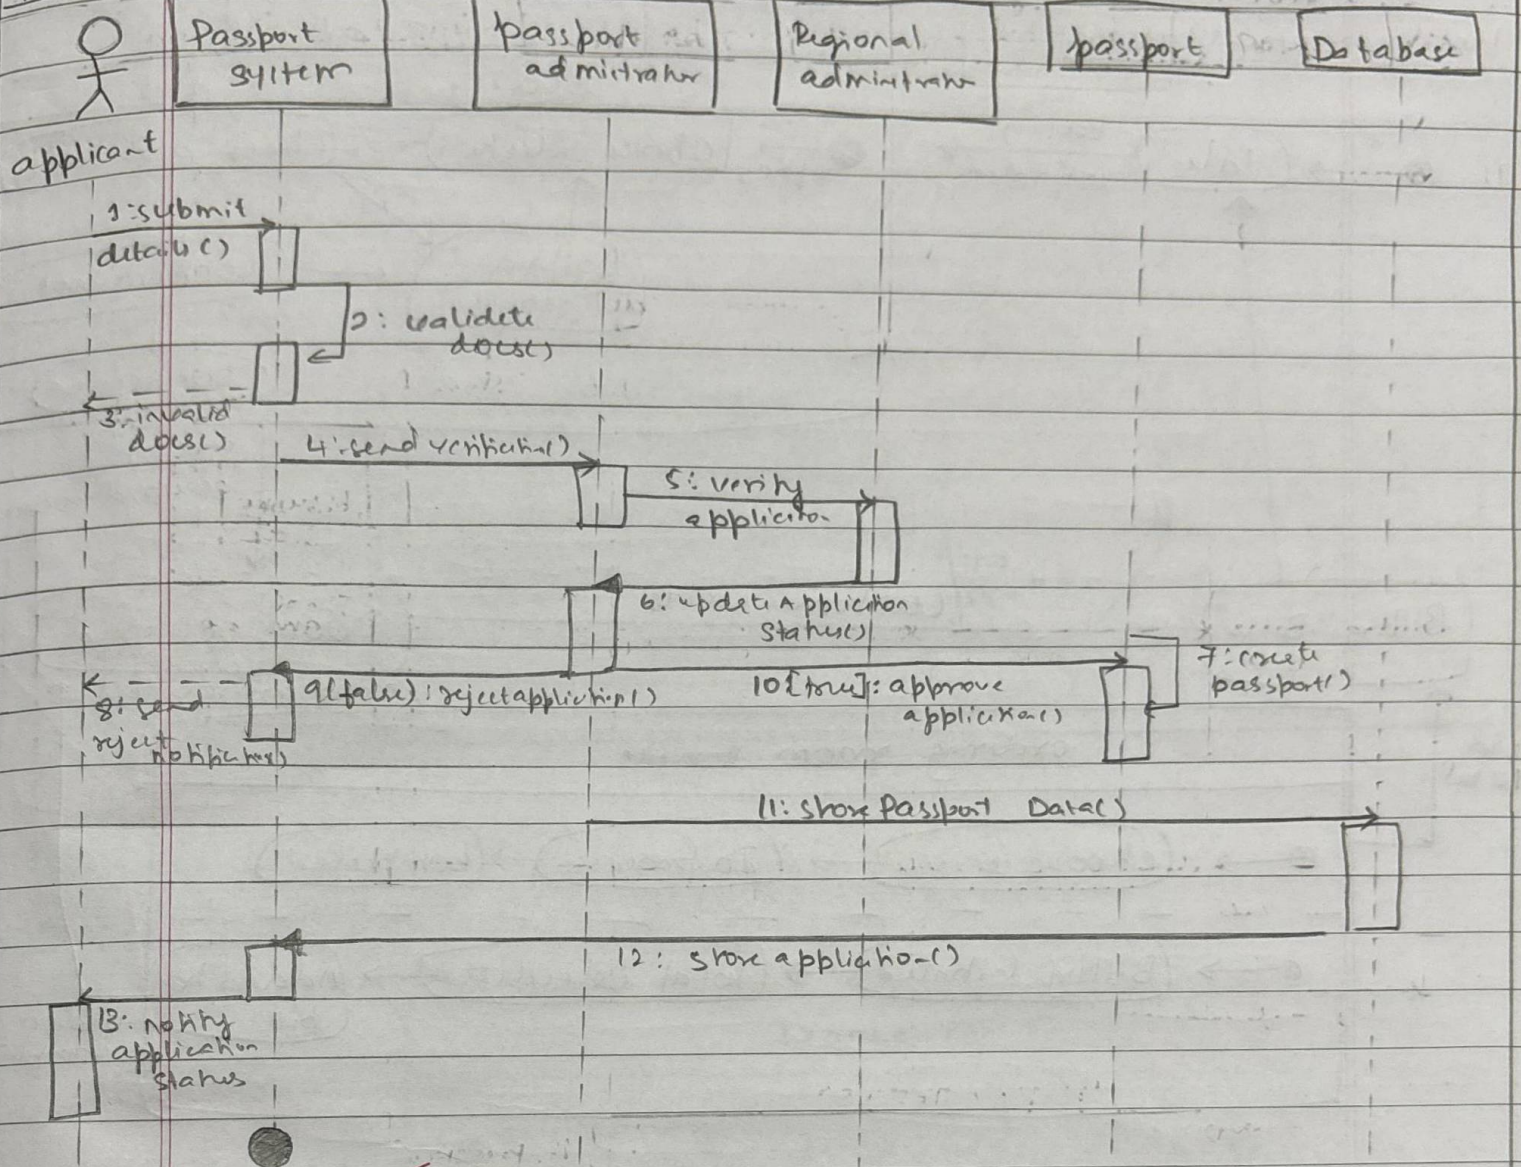 Passport
system
passport
admistrator
Regional
admintrator
passport
Database
applicant
1:submit
details()
2: validate
docs()
3: invalid
docs()
4:send verification()
5: verify
application
6: update Application
Status()
7: create
passport()
8: send
reject
notification()
9(false): reject application()
10[true]: approve
application()
11: store Passport Data()
12: store application()
13: notify
application
status